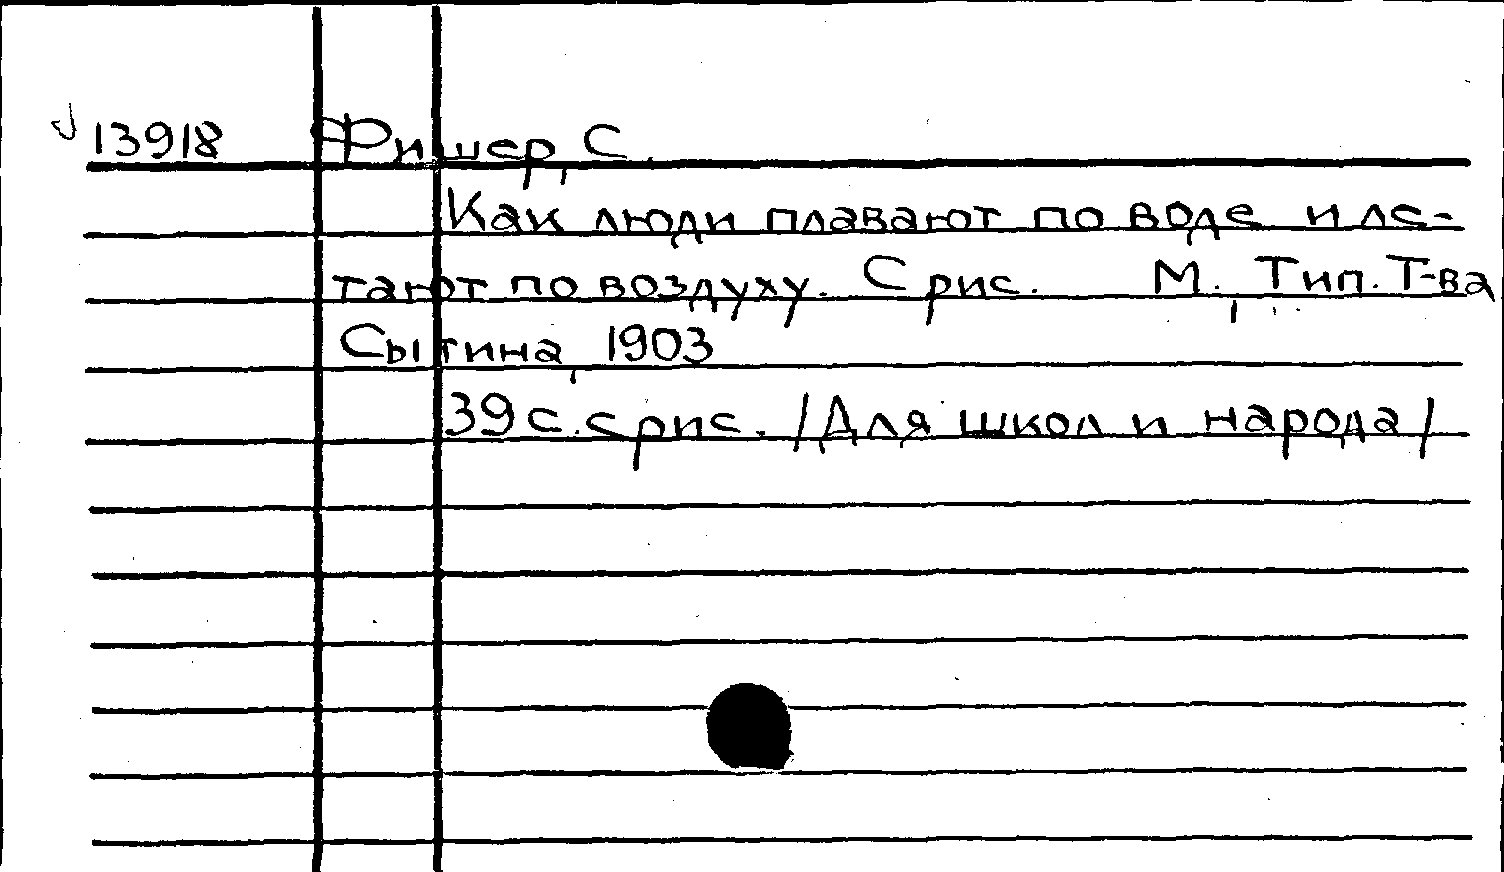 13918 Фишер, С.
Как люди плавают по воде и ле-
тают по воздуху. С рис. М., Тип. Т-ва
Сытина, 1903
39 с. с рис. /Для школ и народа/